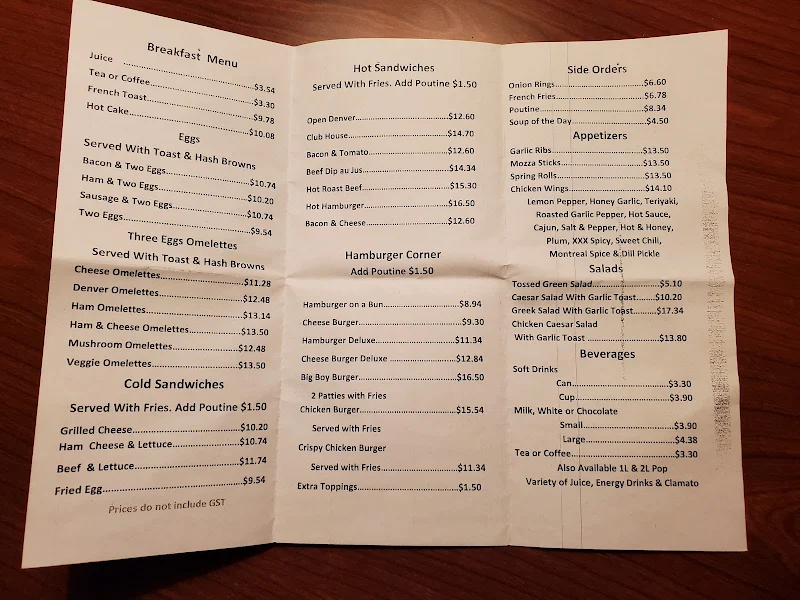 Breakfast Menu
Juice ........................................$3.54
Tea or Coffee..............................$3.30
French Toast...............................$9.78
Hot Cake....................................$10.08
Eggs
Served With Toast & Hash Browns
Bacon & Two Eggs......................$10.74
Ham & Two Eggs........................$10.20
Sausage & Two Eggs..................$10.74
Two Eggs...................................$9.54
Three Eggs Omelettes
Served With Toast & Hash Browns
Cheese Omelettes......................$11.28
Denver Omelettes......................$12.48
Ham Omelettes..........................$13.14
Ham & Cheese Omelettes...........$13.50
Mushroom Omelettes.................$12.48
Veggie Omelettes.......................$13.50
Cold Sandwiches
Served With Fries. Add Poutine $1.50
Grilled Cheese............................$10.20
Ham Cheese & Lettuce................$10.74
Beef & Lettuce...........................$11.74
Fried Egg...................................$9.54
Prices do not include GST
Hot Sandwiches
Served With Fries. Add Poutine $1.50
Open Denver..............................$12.60
Club House................................$14.70
Bacon & Tomato........................$12.60
Beef Dip au Jus..........................$14.34
Hot Roast Beef...........................$15.30
Hot Hamburger..........................$16.50
Bacon & Cheese.........................$12.60
Hamburger Corner
Add Poutine $1.50
Hamburger on a Bun...................$8.94
Cheese Burger............................$9.30
Hamburger Deluxe.....................$11.34
Cheese Burger Deluxe ................$12.84
Big Boy Burger...........................$16.50
2 Patties with Fries
Chicken Burger...........................$15.54
Served with Fries
Crispy Chicken Burger
Served with Fries........................$11.34
Extra Toppings...........................$1.50
Side Orders
Onion Rings...............................$6.60
French Fries...............................$6.78
Poutine......................................$8.34
Soup of the Day..........................$4.50
Appetizers
Garlic Ribs.................................$13.50
Mozza Sticks..............................$13.50
Spring Rolls................................$13.50
Chicken Wings...........................$14.10
Lemon Pepper, Honey Garlic, Teriyaki,
Roasted Garlic Pepper, Hot Sauce,
Cajun, Salt & Pepper, Hot & Honey,
Plum, XXX Spicy, Sweet Chili,
Montreal Spice & Dill Pickle
Salads
Tossed Green Salad.....................$5.10
Caesar Salad With Garlic Toast.....$10.20
Greek Salad With Garlic Toast......$17.34
Chicken Caesar Salad
With Garlic Toast ........................$13.80
Beverages
Soft Drinks
Can............................................$3.30
Cup...........................................$3.90
Milk, White or Chocolate
Small.........................................$3.90
Large.........................................$4.38
Tea or Coffee..............................$3.30
Also Available 1L & 2L Pop
Variety of Juice, Energy Drinks & Clamato